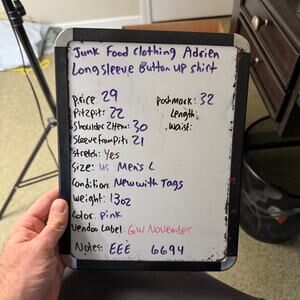 Junk Food Clothing Adrien
Longsleeve Button Up Shirt
Price: 29
Poshmark: 32
Pit2pit: 22
Length:
Shoulder2Hem: 30
Waist:
Sleeve from Pit: 21
Stretch: Yes
Size: US Men's L
Condition: New with Tags
Weight: 13oz
Color: Pink
Vendoo Label: GW November
Notes: EEE 6694